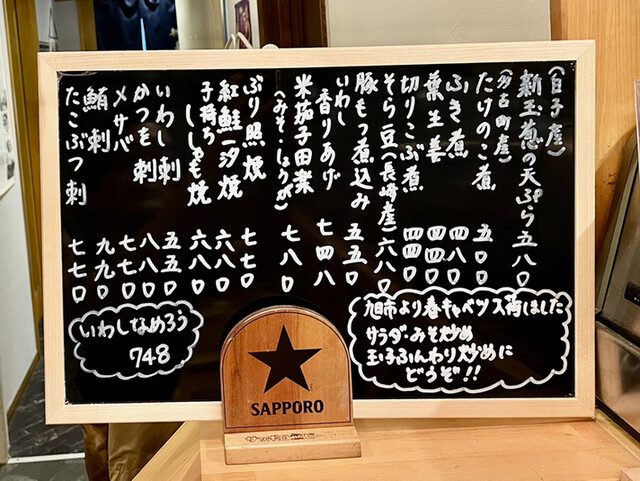 (白子産)
新玉葱の天ぷら 五八〇
(多古町産)
たけのこ煮 五〇〇
ふき煮 四八〇
葉生姜 四四〇
切りこぶ煮 四四〇
そら豆(長崎産) 六八〇
豚もつ煮込み 五五〇
いわし
香りあげ 七四八
米茄子田楽
(みそ・しょうが) 七八〇
ぶり照焼 七七〇
紅鮭一汐焼 六八〇
子持ち
ししゃも焼 六八〇
いわし刺 五五〇
かつを刺 八八〇
メサバ 七七〇
鮪刺 九九〇
たこぶつ刺 七七〇
旭市より春キャベツ入荷しました
サラダ・みそ炒め
玉子ふんわり炒めに
どうぞ!!
いわしなめろう
748
SAPPORO